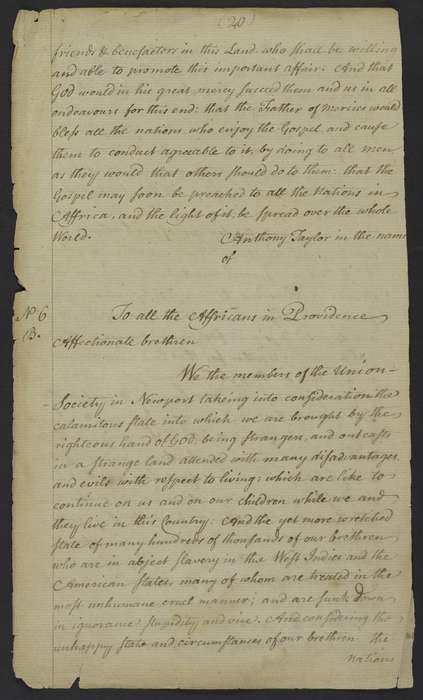 (20)
friends & benefactors in this Land who shall be willing
and able to promote this important affair. And that
God would in his great mercy succeed them and us in all
endeavours for this end: that the Father of mercies would
bless all the nations who enjoy the Gospel, and cause
them to conduct agreeable to it, by doing to all men
as they would that others should do to them: that the
Gospel may soon be preached to all the Nations in
Affrica, and the light of it, be spread over the whole
World.
Anthony Taylor in the name
of
No 6
B.
To all the Affricans in Providence
Affectionate brethren
We the members of the Union
Society in Newport takeing into consideration the
calamitous state into which we are brought by the
righteous hand of God, being strangers, and outcasts
in a strange land attended with many disadvantages
and evils with respect to living; which are like to
continue on us and on our children while we and
they live in this Country. And the yet more wretched
state of many hundreds of thousands of our brethren
who are in abject slavery in the West Indies and the
American States, many of whom are treated in the
most unhumane cruel manner; and are sunk down
in ignorance stupidity and vice. And considering the
unhappy state and circumstances of our brethren the
nations